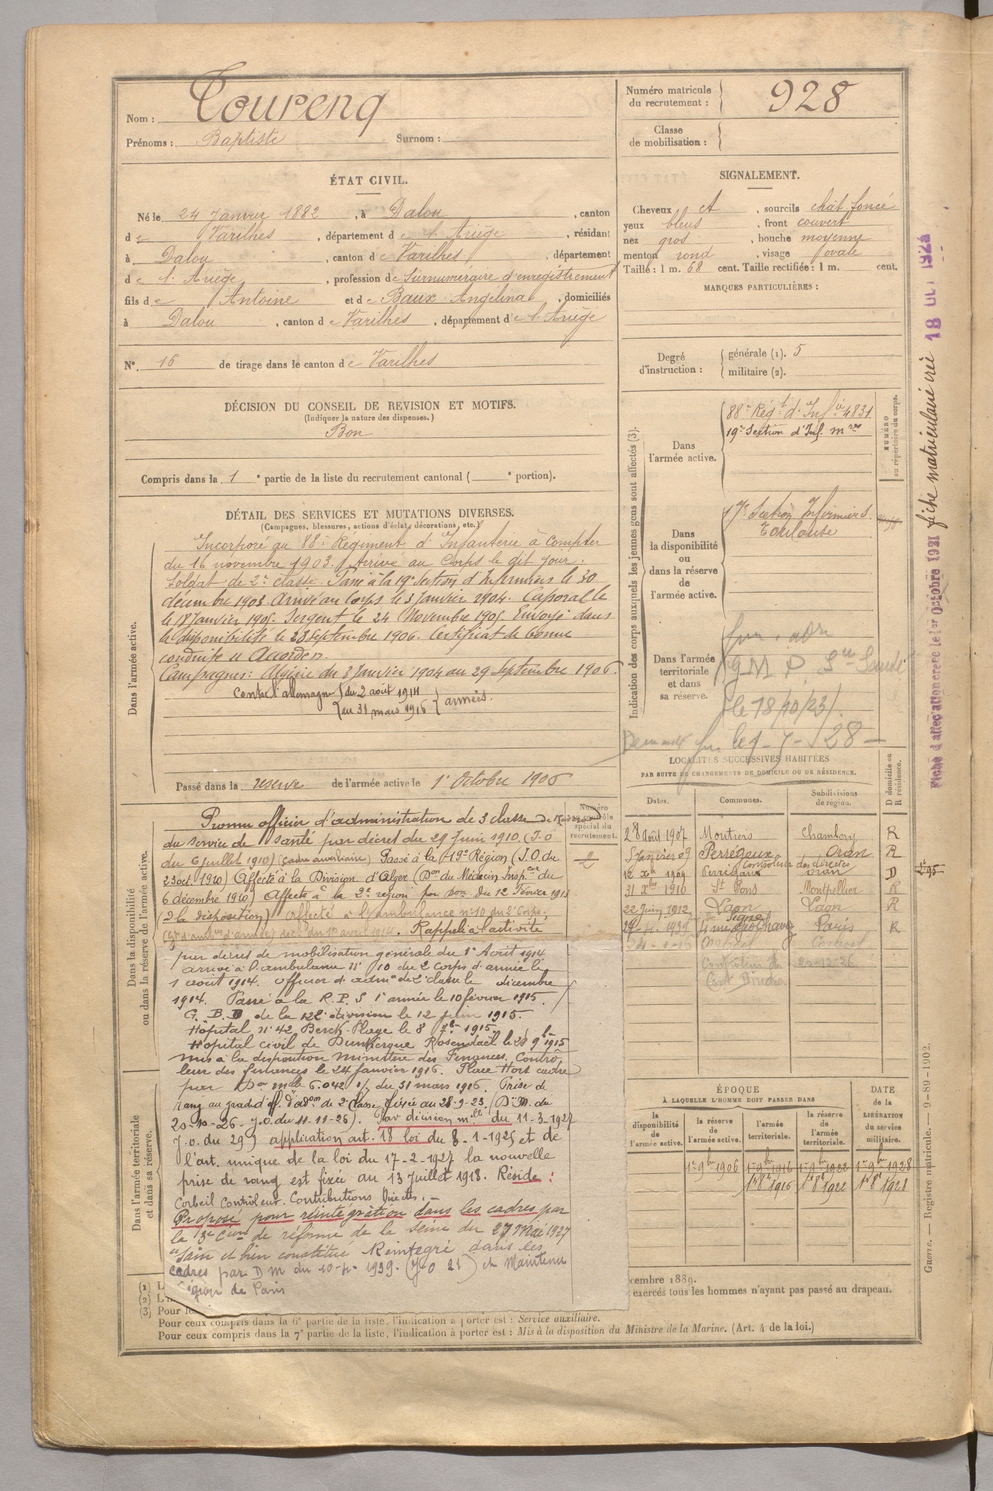 Nom : Tourenq
Prénoms : Baptiste Surnom :
ÉTAT CIVIL.
Né le 24 Janvier 1882, à Dalou, canton
de Varilhes, département de l'Ariège, résidant
à Dalou, canton de Varilhes, département
de l'Ariège, profession de Surnuméraire d'enregistrement
fils de Antoine et de Baux Angelina, domiciliés
à Dalou, canton de Varilhes, département de l'Ariège
N° 16 de tirage dans le canton de Varilhes
DÉCISION DU CONSEIL DE REVISION ET MOTIFS.
(Indiquer la nature des dispenses.)
Bon
Compris dans la 1e partie de la liste du recrutement cantonal ( e portion).
DÉTAIL DES SERVICES ET MUTATIONS DIVERSES.
(Campagnes, blessures, actions d'éclat, décorations, etc.)
Dans l'armée active.
Incorporé au 88e Régiment d'Infanterie à compter
du 16 novembre 1903. Arrivé au Corps le dit jour.
Soldat de 2e classe. Passé à la 19e Section d'Infirmiers le 30
décembre 1903 Arrivé au Corps le 3 Janvier 1904. Caporal le
le 18 Janvier 1905. Sergent le 24 Novembre 1905 Envoyé dans
la disponibilité le 28 septembre 1906. Certificat de bonne
conduite "Accordé".
Campagnes: Algérie du 3 Janvier 1904 au 29 Septembre 1906.
Contre l'allemagne du 2 août 1914
au 31 mars 1916 armées.
Passé dans la réserve de l'armée active le 1er Octobre 1906
Dans la disponibilité
ou dans la réserve de l'armée active.
Numéro
au contrôle
spécial du
recrutement.
Promu officier d'administration de 3e classe de réserve
du service de santé par décret du 29 Juin 1910. (J.O
du 6 juillet 1910) (cadre auxiliaire) Passé à la 19e Région (J.O. du
23 oct. 1910) Affecté à la Division d'Alger (Don du Médecin Insp. du
6 décembre 1910) Affecté à la 2e région par Don du 12 Février 1913
(à la disposition) Affecté à l'ambulance n° 10 du 2e Corps.
Rappelé à l'activité
par décret de mobilisation générale du 1er Août 1914
arrivé à l'ambulance n° 10 du 2 Corps d'armée le
1 août 1914. Officier d'adm de 2e classe le décembre
1914. Passé à la R.P.S 1e armée le 10 février 1915.
G. B. D de la 122e division le 12 juin 1915.
Hôpital n° 42 Berck-Plage le 8 7bre 1915.
Hôpital civil de Dunkerque Rosendaël le 20 9bre 1915
mis à la disposition ministère des Finances. Contrô-
leur des finances le 24 janvier 1916. Placé Hors cadre
par Don mlle 6.042 1/7 du 31 mars 1916. Prise de
rang au grade d'off. d'adon de 2e classe fixée au 28-9-23 (D.M. du
20-10-26 - J.O. du 11-11-26). Par décision mlle du 11-3-1927
J.O. du 29) application art. 18 loi du 8-1-1925 et de
l'art. unique de la loi du 17-2-1927 la nouvelle
prise de rang est fixée au 13 juillet 1918. Réside :
Corbeil Contrôleur Contributions Directes.
Proposé pour réintégration dans les cadres par
la Cion de réforme de la Seine du 27 Mai 1927
"Sain et bien constitué" Réintégré dans les
cadres par D M du 1939. (J O ) et Maintenu
région de Paris
Dans l'armée territoriale
et dans sa réserve.
(1)
(2)
(3) Pour
Pour ceux compris dans la 6e partie de la liste, l'indication à porter est : Service auxiliaire.
Pour ceux compris dans la 7e partie de la liste, l'indication à porter est : Mis à la disposition du Ministre de la Marine. (Art. 4 de la loi.)
Numéro matricule
du recrutement : 928
Classe
de mobilisation :
SIGNALEMENT.
Cheveux et, sourcils chât. foncé
yeux bleus, front couvert
nez gros, bouche moyenne
menton rond, visage ovale
Taille : 1 m. 68 cent. Taille rectifiée : 1 m. cent.
MARQUES PARTICULIÈRES :
Degré
d'instruction :
générale (1). 5
militaire (2).
Indication des corps auxquels les jeunes gens sont affectés (3).
NUMÉRO
au répertoire du corps.
Dans
l'armée active.
88e Régt d'Infie 4831
19e Section d'Inf. mres
Dans
la disponibilité
ou dans la réserve
de
l'armée active.
17e Section Infirmiers.
Toulouse
Dans l'armée
territoriale
et dans
sa réserve.
G M P. Sce Santé
le 18/10/23
LOCALITÉS SUCCESSIVES HABITÉES
PAR SUITE DE CHANGEMENTS DE DOMICILE OU DE RÉSIDENCE.
Dates. Communes. Subdivisions de région. D domicile ou R résidence.
28 Août 1907 Moutiers Chambéry R
5 Janvier 09 Perrégaux Oran R
12 Xbre 1909 Perrégaux Oran D
31 Xbre 1910 St Pons Montpellier R
22 Juin 1912 Laon Laon R
Paris R
Corbeil Corbeil
ÉPOQUE
À LAQUELLE L'HOMME DOIT PASSER DANS
la disponibilité de l'armée active.
la réserve de l'armée active.
l'armée territoriale.
la réserve de l'armée territoriale.
DATE de la LIBÉRATION du service militaire.
1er 9bre 1906 1er 9bre 1916 1er 9bre 1922 1er 9bre 1928
1er 8bre 1916 1er 8bre 1922 1er 8bre 1928
cembre 1889.
exercés tous les hommes n'ayant pas passé au drapeau.
Fiche d'affectation créée le 1er Octobre 1921 fiche matriculaire crée 18 OCT 192
Guerre. — Registre matricule. — 9-89-1902.